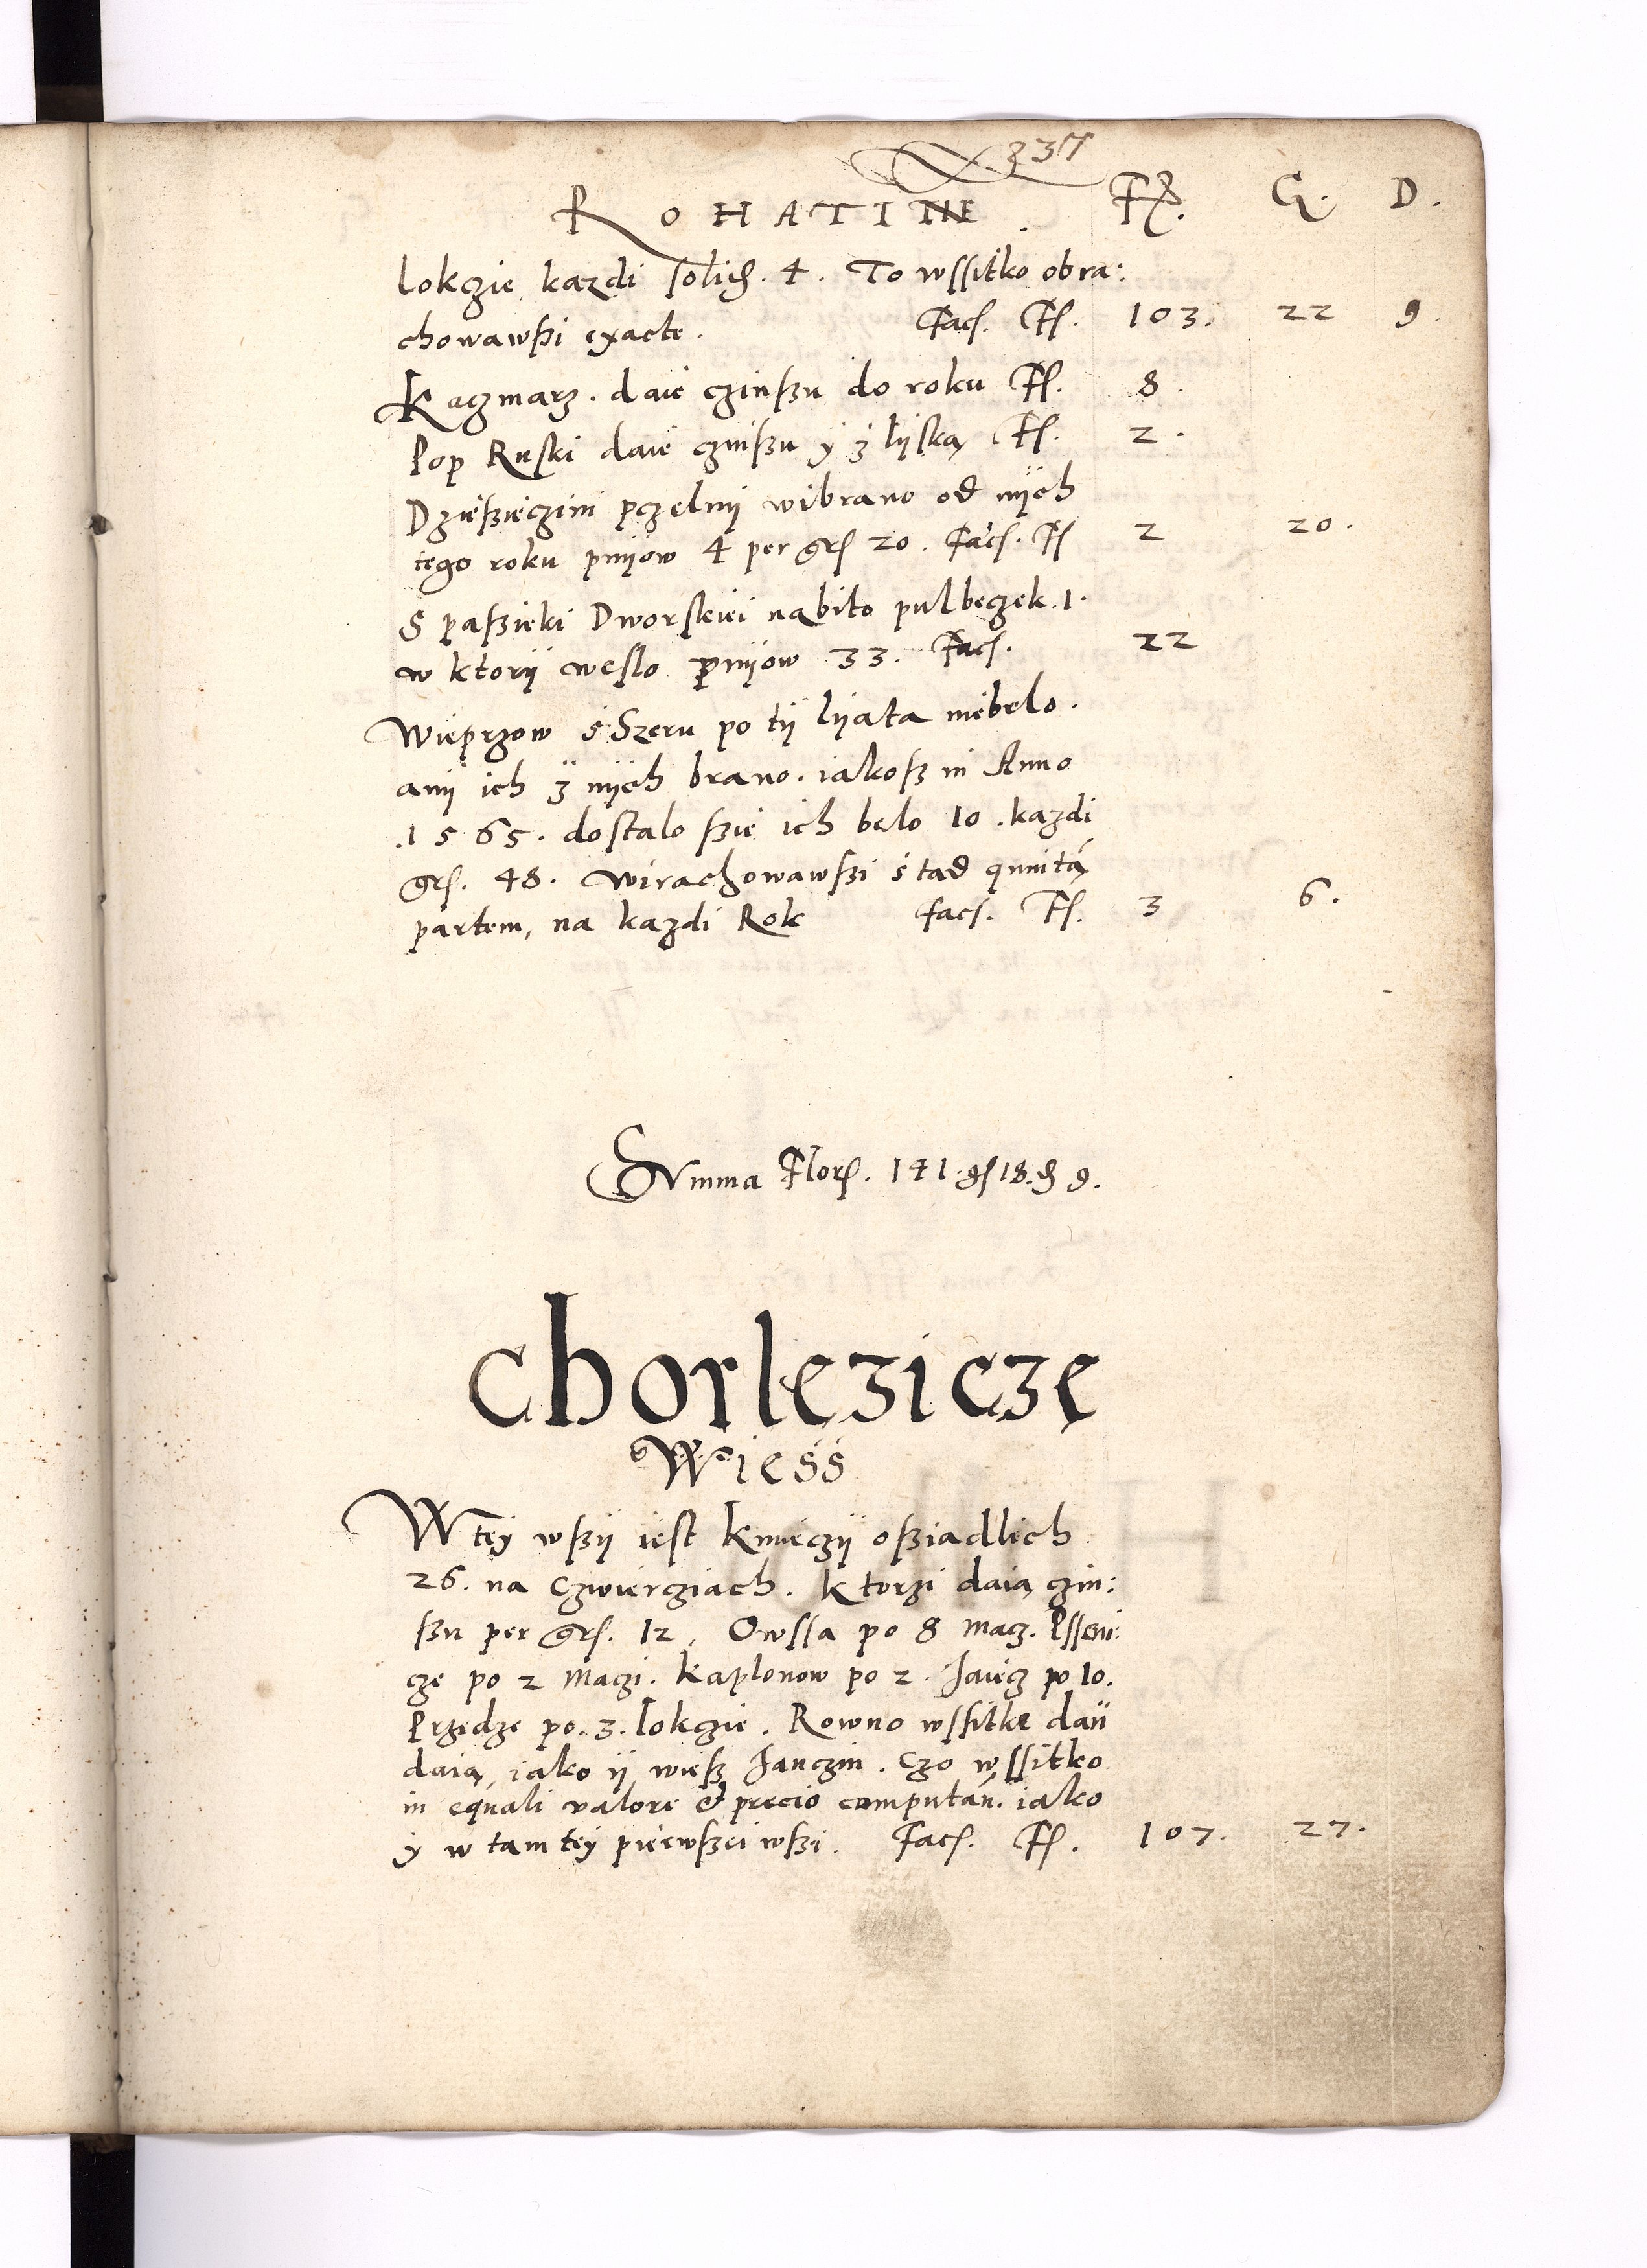 337
ROHATINE Fl. G. D.
lokczie kazdi solid. 4. To wssitko obra:
chowawßi exacte. Facf. Ff. 103. 22 9.
Kaczmarz. daie czinßu do roku Ff. 8.
Pop Ruski daie czinßu y z lyską Ff. 2.
Dzießieczini pczelnij wibrano od nijch
tego roku pnijow 4 per grſ 20. Facſ. Ff 2 20.
S paßieki Dworskiei nabito pulbeczek. 1.
w ktorij weslo pnijow 33. Facſ. 22
Wieprzow s Szeru po tij lijata niebelo.
anij ich z nijch brano. iakoß in Anno
.1565. dostalo ßie ich belo 10. kazdi
grſ. 48. wirachowawßi s tad quintą
partem, na kazdi Rok facſ. Ff. 3 6.
Summa Florſ. 141. gſ 18. d 9.
Chorleziczę
Wieśś
W tey wßij iest Kmieczij oßiadlich
26. na Czwierciach. Ktorzi daią czin:
ßu per Grſ. 12. Owssa po 8 Macz. Psseni:
cze po 2 Maczi. Kaplonow po 2. Jaiecz po 10.
Przedze po. 3. lokczie. Rowno wssitke dań
daią, iako ij wieß Janczin. Czo wssitko
in equali valore & precio computań. iako
y w tamtey pierwßei wßi. Facſ. Ff. 107. 27.